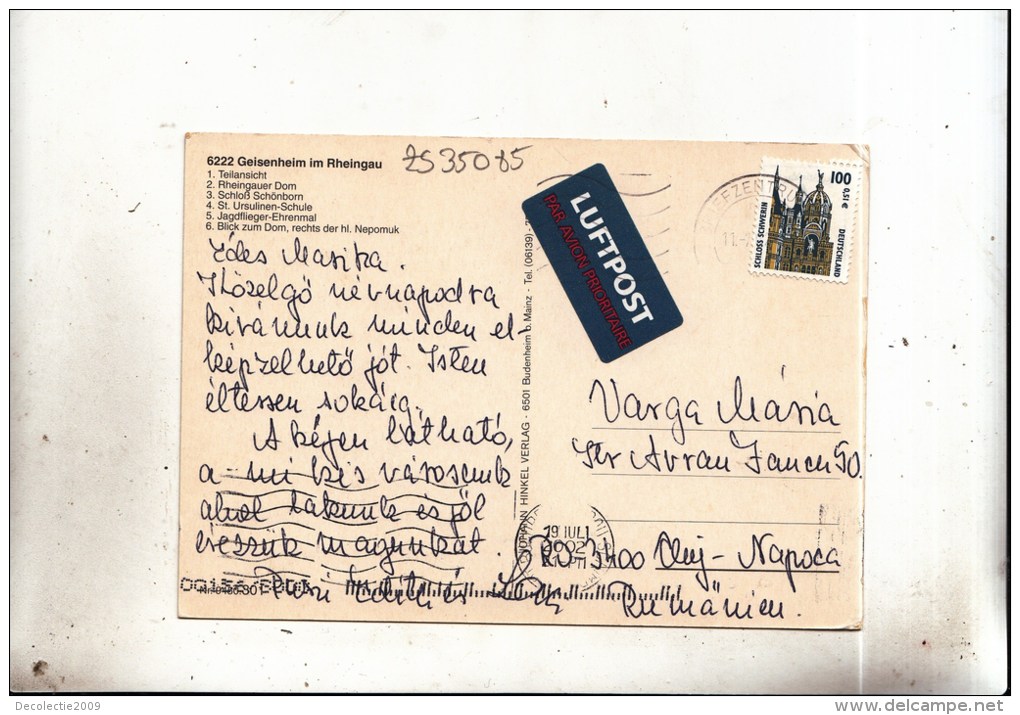 6222 Geisenheim im Rheingau
1. Teilansicht
2. Rheingauer Dom
3. Schloß Schönborn
4. St. Ursulinen-Schule
5. Jagdflieger-Ehrenmal
6. Blick zum Dom, rechts der hl. Nepomuk
ZS 35085
Édes Marika.
Közelgő névnapodra
kívánunk minden el-
képzelhető jót. Isten
éltessen sokáig.
A képen látható,
a mi kis városunk
ahol lakunk és jól
érezzük magunkat.
Edit és
HINKEL VERLAG · 6501 Budenheim b. Mainz · Tel. (06139)
LUFTPOST
PAR AVION PRIORITAIRE
100
0,51 €
SCHLOSS SCHWERIN
DEUTSCHLAND
Varga Mária
Str Avram Iancu 50.
19 IUL
2002
RO 3400 Cluj-Napoca
Rumänien.
Decolectie2009
www.delcampe.net